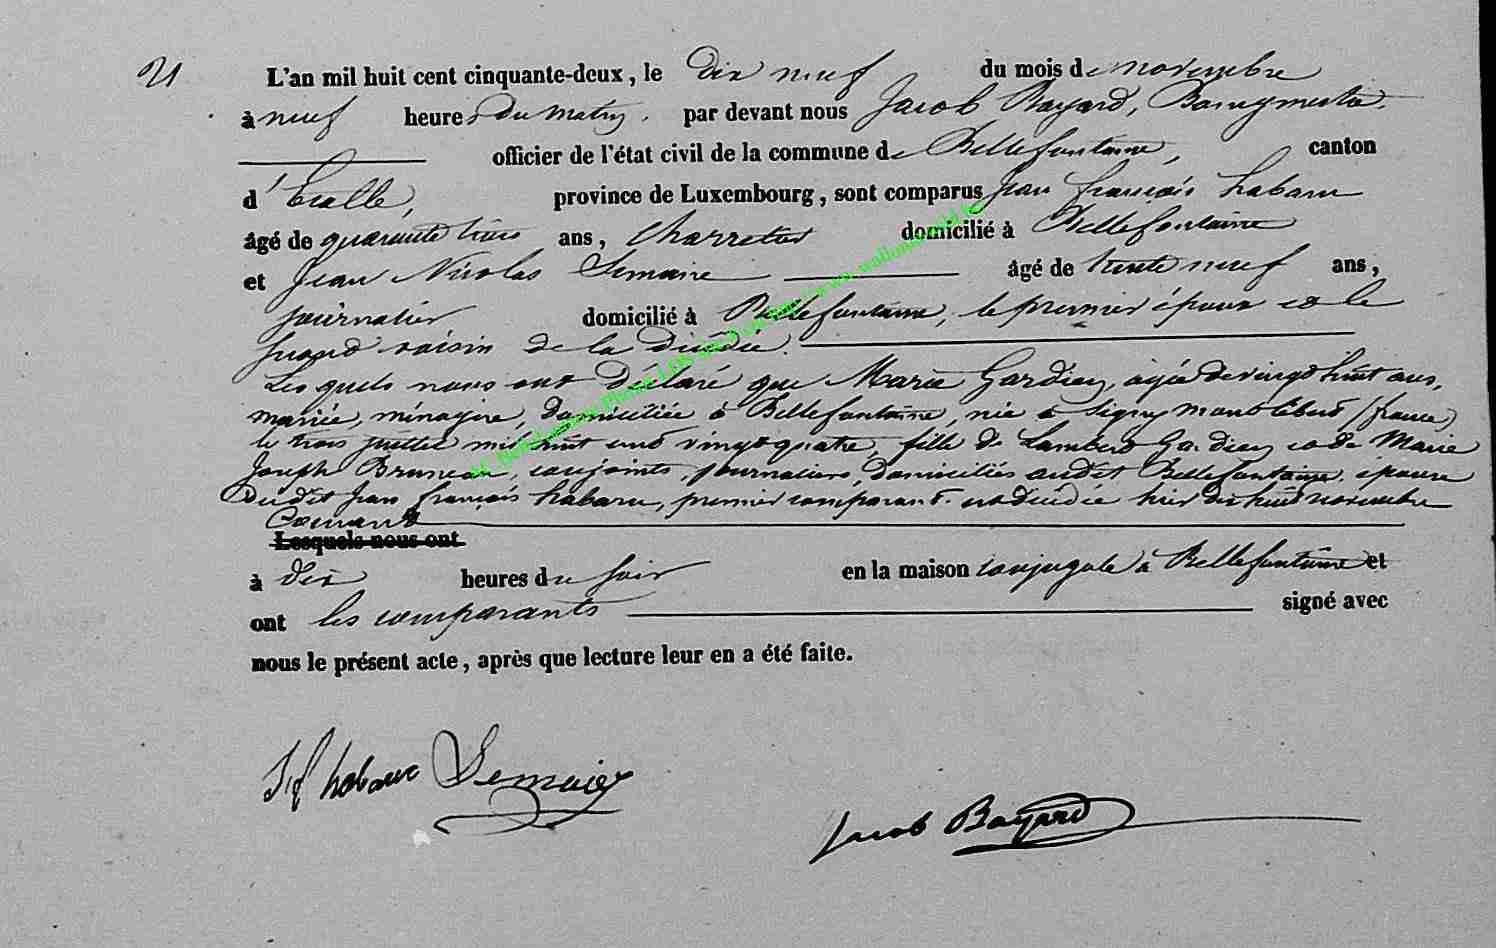 21
L'an mil huit cent cinquante-deux, le dix neuf du mois de novembre
à neuf heures du matin, par devant nous Jacob Bayard, Bourgmestre
officier de l'état civil de la commune de Bellefontaine, canton
d'Etalle, province de Luxembourg, sont comparus Jean françois habaru
âgé de quarante trois ans, Charretier domicilié à Bellefontaine
et Jean Nicolas Lemaire âgé de trente neuf ans,
journalier domicilié à Bellefontaine, le premier époux et le
second voisin de la décédée.
Les quels nous ont déclaré que Marie Gardien, agée de vingt huit ans,
mariée, ménagère, domiciliée à Bellefontaine, née à Signy (france)
le trois juillet mil huit cent vingt quatre, fille de Lambert Gardien et de Marie
Joseph Bruneau, conjoints, journaliers, domiciliés audit Bellefontaine, épouse
du dit Jean françois habaru, premier comparant. est décédée hier dix huit novembre
Courant
Lesquels nous ont
à dix heures du soir en la maison conjugale à Bellefontaine et
ont les comparants signé avec
nous le présent acte, après que lecture leur en a été faite.
Jf habaru Lemaire
Jacob Bayard